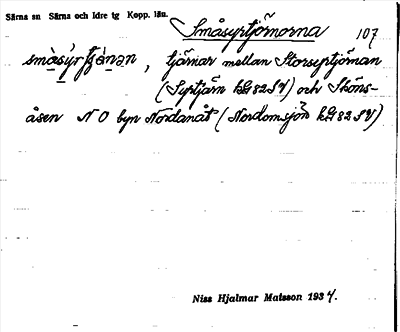 Särna sn Särna och Idre tg Kopp. län.
Småsyrtjörnorna 107
tjärnar mellan Storsyrtjörnan
(Syrtjärn kG82SV) och Sköns-
åsen NO byn Nordanåt (Nordomsjön kG82SV)
Niss Hjalmar Matsson 1934.